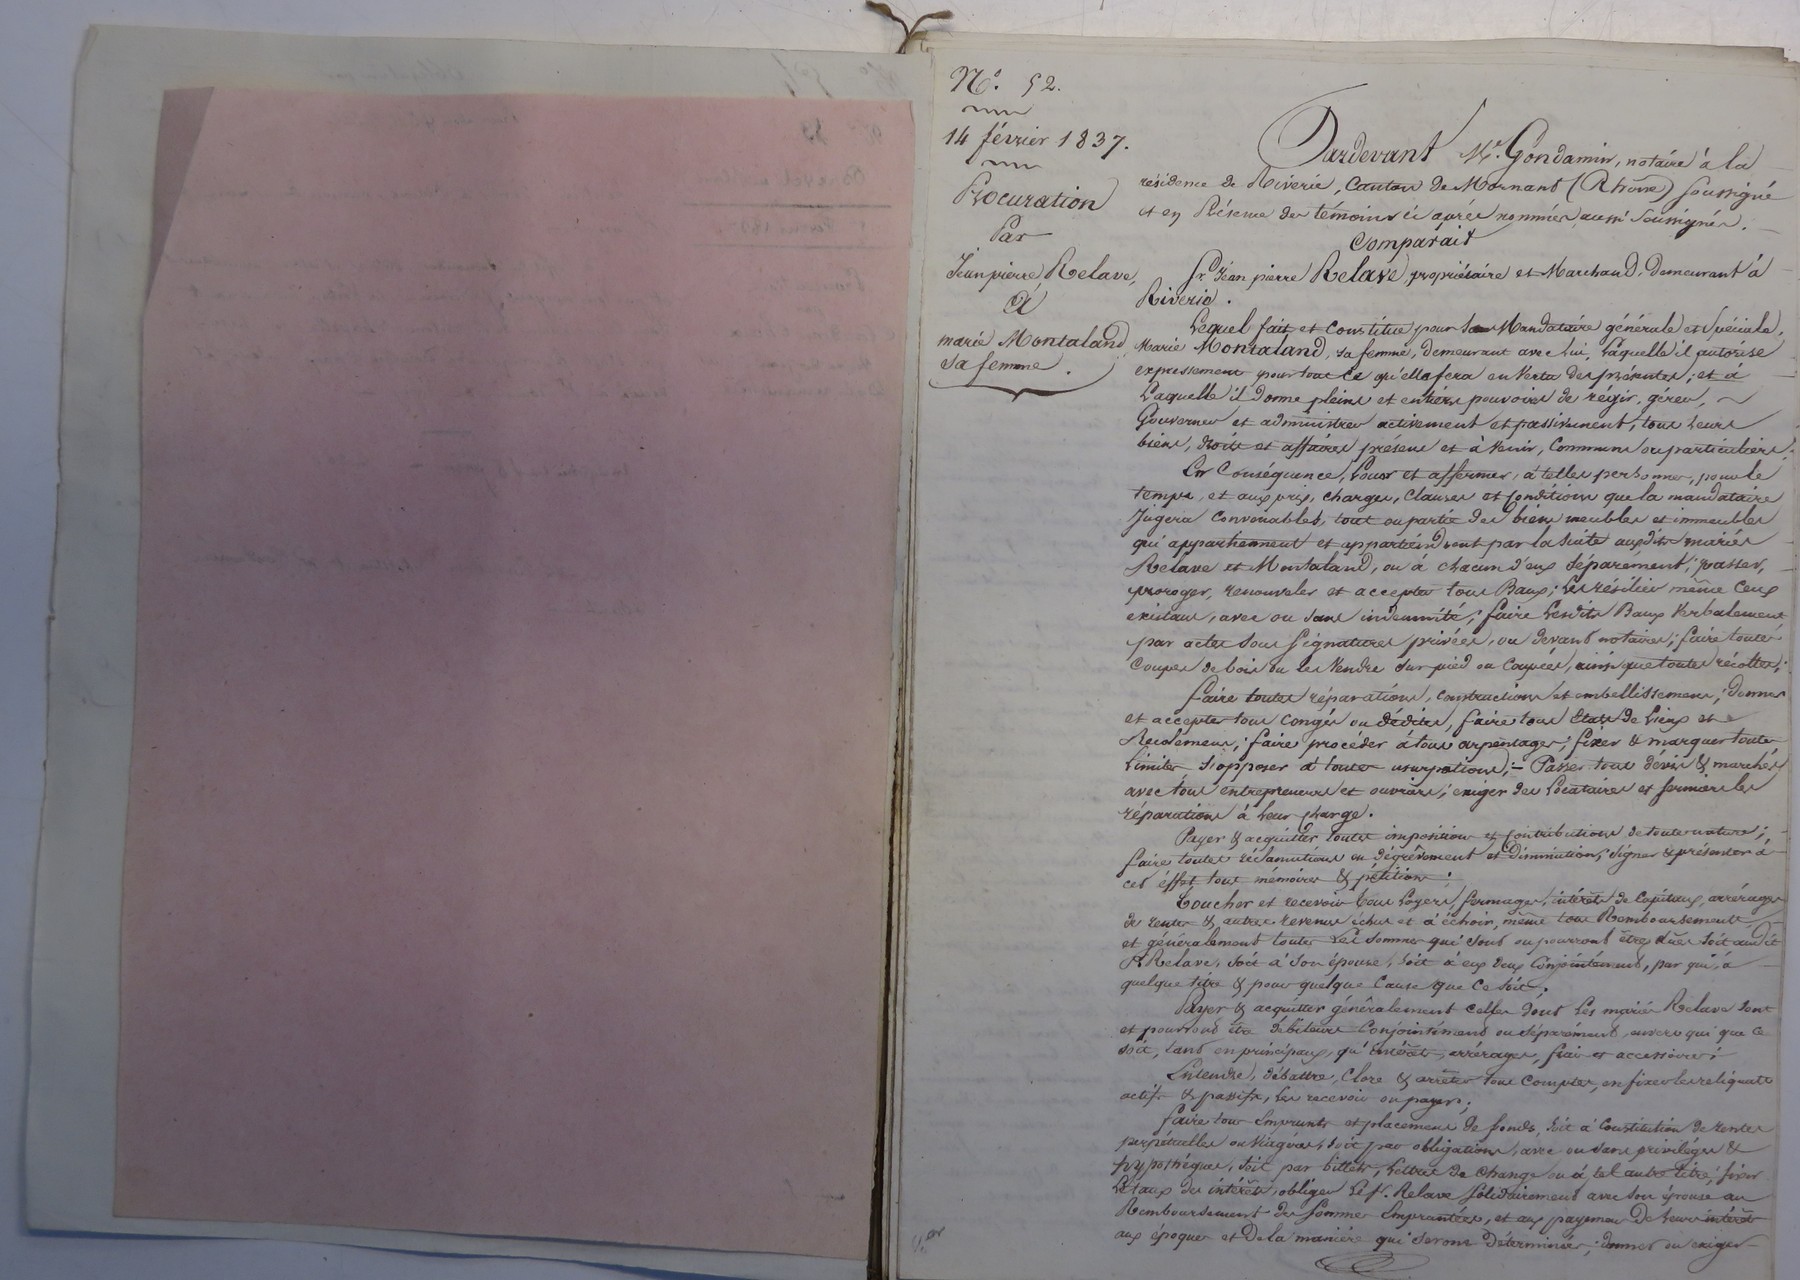 N.° 52.
14 février 1837.
Procuration
Par
Jean pierre Relave,
à
marie Montaland,
sa femme.
Pardevant M.e Gondamin, notaire à la
résidence de Riverie, Canton de Mornant (Rhône) soussigné
et en Présence des témoins ci après nommés, aussi soussignés.
Comparait
Sr. Jean pierre Relave, propriétaire et Marchand, demeurant à
Riverie.
Lequel fait et constitue pour sa Mandataire générale et spéciale,
Marie Montaland, sa femme, demeurant avec lui, laquelle il autorise
expressement pour tout ce qu'elle fera en vertu des présentes, et à
laquelle il donne pleins et entiers pouvoirs de régir, gérer,
Gouverner et administrer activement et passivement, tous leurs
biens, droits et affaires présens et à venir, communs ou particuliers.
En Conséquence, louer et affermer, à telles personnes, pour le
temps, et aux prix, charges, clauses et conditions que la mandataire
Jugera convenables, tout ou partie des biens meubles et immeubles
qui appartiennent et appartiendront par la suite auxdits mariés
Relave et Montaland, ou à chacun d'eux séparément; passer,
proroger, renouveler et accepter tous Baux; les résilier même ceux
existans, avec ou sans indemnité; faire lesdits Baux verbalement
par actes sous signatures privées, ou devant notaires; faire toutes
coupes de bois ou les vendre sur pied ou coupées, ainsi que toutes récoltes;
faire toutes réparations, constructions et embellissemens; donner
et accepter tous congés ou dédites, faire tous Etats de lieux et
Recolemens; faire procéder à tous arpentages; fixer & marquer toutes
limites s'opposer à toutes usurpations; – Passer tous dévis & marchés
avec tous entrepreneurs et ouvriers; exiger des locataires et fermiers les
réparations à leur charge.
Payer & acquitter toutes impositions et contributions de toute nature;
faire toutes réclamations en dégrèvement et diminution; signer & présenter à
cet éffet tous mémoires & pétitions;
Toucher et recevoir tous loyers, fermages, intérêts de capitaux, arrérages
de rentes & autres revenus échus et à échoir, même tous Remboursemens,
et généralement toutes les sommes qui sont ou pourront être dues soit audit
Sr. Relave, soit à son épouse, soit à eux deux conjointement, par qui, à
quelque titre & pour quelque cause que ce soit.
Payer & acquitter généralement celles dont les mariés Relave sont
et pourront être débiteurs conjointement ou séparément, envers qui que ce
soit, tant en principaux, qu'intérêts, arrérages, frais et accessoires;
Entendre, débattre, clore & arrêter tous comptes, en fixer les reliquats
actifs & passifs, les recevoir ou payer;
faire tous Emprunts et placemens de fonds, soit à Constitution de rentes
perpétuelles ou viagères, soit par obligations, avec ou sans privilèges &
hypothèques, soit par billets, lettres de change ou à tel autre titre; fixer
le taux des intérêts; obliger le Sr. Relave solidairement avec son épouse au
Remboursement des sommes Empruntées, et aux payemens de leurs intérêts
aux époques et de la manière qui seront déterminées; donner ou exiger